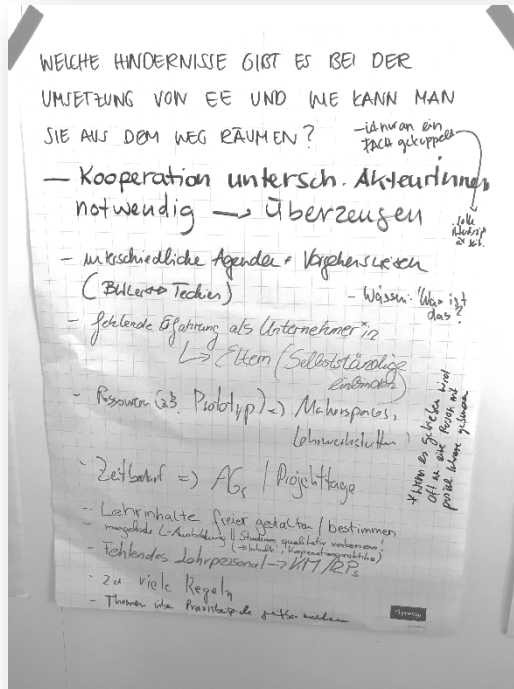 WELCHE HINDERNISSE GIBT ES BEI DER
UMSETZUNG VON EE UND WIE KANN MAN
SIE AUS DEM WEG RÄUMEN?
- ist nur an ein
FACH gekuppelt
solle
— Kooperation untersch. AkteurInnen
notwendig → Überzeugen
- unterschiedliche Agenden + Vorgehensweisen
(BWLer ↔ Techies)
- Wissen: "Was ist
das?
- fehlende Erfahrung als Unternehmer*in
↳ Eltern (Selbstständige
einbinden)
- Ressourcen (z.B. Prototyp) => Makerspaces,
Lehrwerkstätten
- Zeitbedarf => AGs / Projekttage
- Lehrinhalte freier gestalten / bestimmen
- mangelnde L-Ausbildung || Studium qualitativ verbessern
(→ Inhalte, Kooperationspraktika)
- Fehlendes Lehrpersonal → KM/RPs
- zu viele Regeln
- Themen über Praxisbeispiele
* Wenn es getrieben wird
oft an eine Person mit